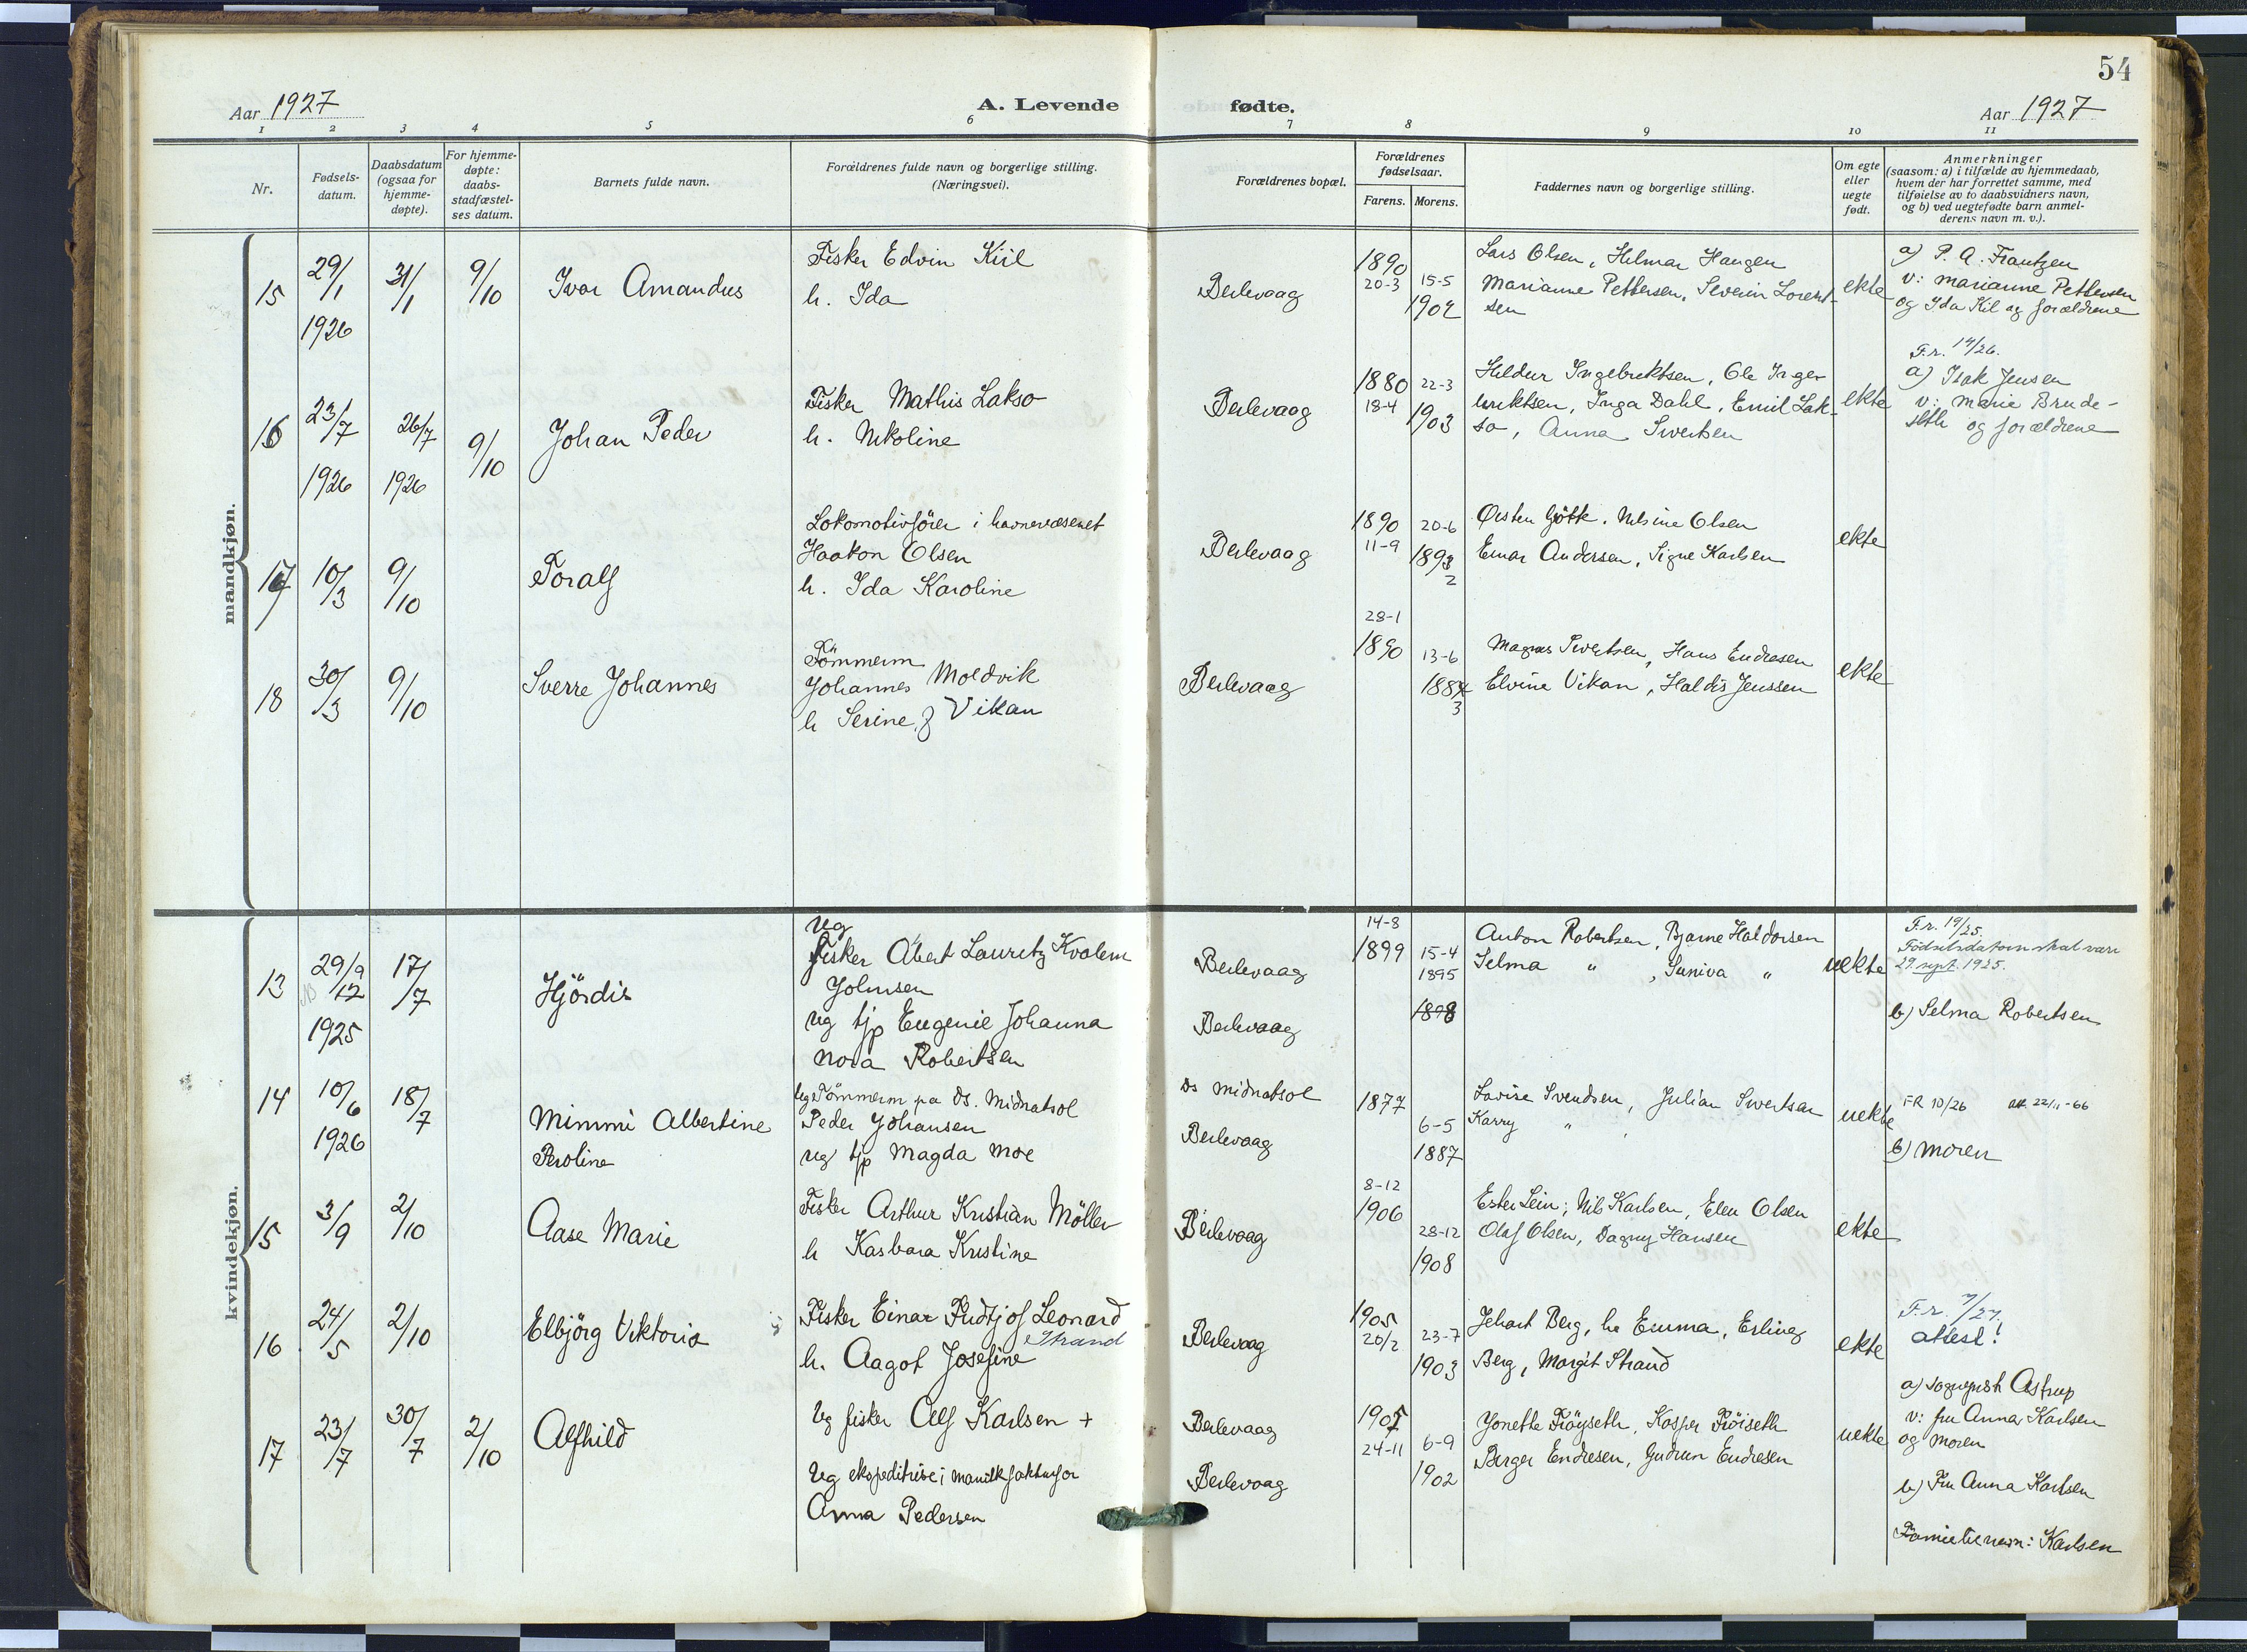 54
Aar 1927
A. Levende
fødte.
Aar 1927
1 2 3 4 5 6 7 8 9 10 11
Nr.
Fødsels-
datum.
Daabsdatum
(ogsaa for
hjemme-
døpte).
For hjemme-
døpte:
daabs-
stadfæstel-
ses datum.
Barnets fulde navn.
Forældrenes fulde navn og borgerlige stilling.
(Næringsvei).
Forældrenes bopæl.
Forældrenes
fødselsaar.
Farens. Morens.
Faddernes navn og borgerlige stilling.
Om egte
eller
uegte
født.
Anmerkninger
(saasom: a) i tilfælde av hjemmedaab,
hvem der har forrettet samme, med
tilføielse av to daabsvidners navn,
og b) ved uegtefødte barn anmel-
derens navn m. v.).
mandkjøn.
15
29/1
1926
31/1
9/10
Ivar Amandus
Fisker Edvin Kiil
h. Ida
Berlevaag
1890
20-3
15-5
1902
Lars Olsen, Hilmar Haugen
Marianne Pettersen, Severin Lorent-
sen
ekte
a) P. A. Frantzen
v: Marianne Pettersen
og Ida Kil og forældrene
16
23/7
1926
26/7
1926
9/10
Johan Peder
Fisker Mathis Lakso
h. Nikoline
Berlevaag
1880
18-4
22-3
1903
Hildur Ingebriktsen, Ole Inge-
briktsen, Inga Dahl, Emil Lak-
so, Anna Sivertsen
ekte
F.r. 14/26.
a) Isak Jensen
v: Marie Brude-
seth og forældrene
17
10/3
9/10
Toralf
Lokomotivfører i havnevæsenet
Haakon Olsen
h. Ida Karoline
Berlevaag
1890
11-9
20-6
1893
2
Øisten Götk, Nilsine Olsen
Einar Andersen, Signe Karlsen
ekte
18
30/3
9/10
Sverre Johannes
Tømmerm
Johannes Moldvik
h Serine J Vikan
Berlevaag
28-1
1890
13-6
1884
3
Magnus Sivertsen, Hans Endresen
Elvine Vikan, Haldis Jenssen
ekte
kvindekjøn.
13
29/9
12
1925
17/7
Hjördis
Ug
Fisker Abert Lauritz Kvalem
Johnsen
ug tjp Eugenie Johanna
Nora Robertsen
Berlevaag
Berlevaag
14-8
1899
15-4
1895
1898
Anton Robertsen, Bjarne Haldorsen
Selma " , Suniva "
uekte
F.r. 19/25.
Fødselsdatum skal være
29. sept. 1925.
b) Selma Robertsen
14
10/6
1926
18/7
Mimmi Albertine
Peroline
Ug Tømmerm pa ds. Midnatsol
Peder Johansen
ug tjp Magda Moe
Ds Midnatsol
Berlevaag
1877
6-5
1887
Lovise Svendsen, Julian Sivertsen
Karry "
uekte
FR 10/26 att 22/11-66
b) Moren
15
3/9
2/10
Aase Marie
Fisker Arthur Kristian Möller
h Kasbara Kristine
Berlevaag
8-12
1906
28-12
1908
Ester Lein; Nils Karlsen, Elen Olsen
Olaf Olsen, Dagny Hansen
ekte
16
24/5
2/10
Elbjörg Viktoria
Fisker Einar Fridtjof Leonard
Strand
h. Aagot Josefine
Berlevaag
1905
20/2
23-7
1903
Jehart Berg, h Emma, Erling
Berg, Margit Strand
ekte
F.r. 7/27.
attest!
17
23/7
30/7
2/10
Alfhild
Ug fisker Alf Karlsen +
Ug ekspeditrise i manufakturfor
Anna Pedersen
Berlevaag
Berlevaag
1905
24-11
6-9
1902
Jonette Fröyseth, Kasper Fröiseth
Birger Endresen, Gudrun Endresen
uekte
a) sogneprest Astrup
v: fru Anna Karlsen
og moren
b) Fru Anna Karlsen
Familienavn: Karlsen